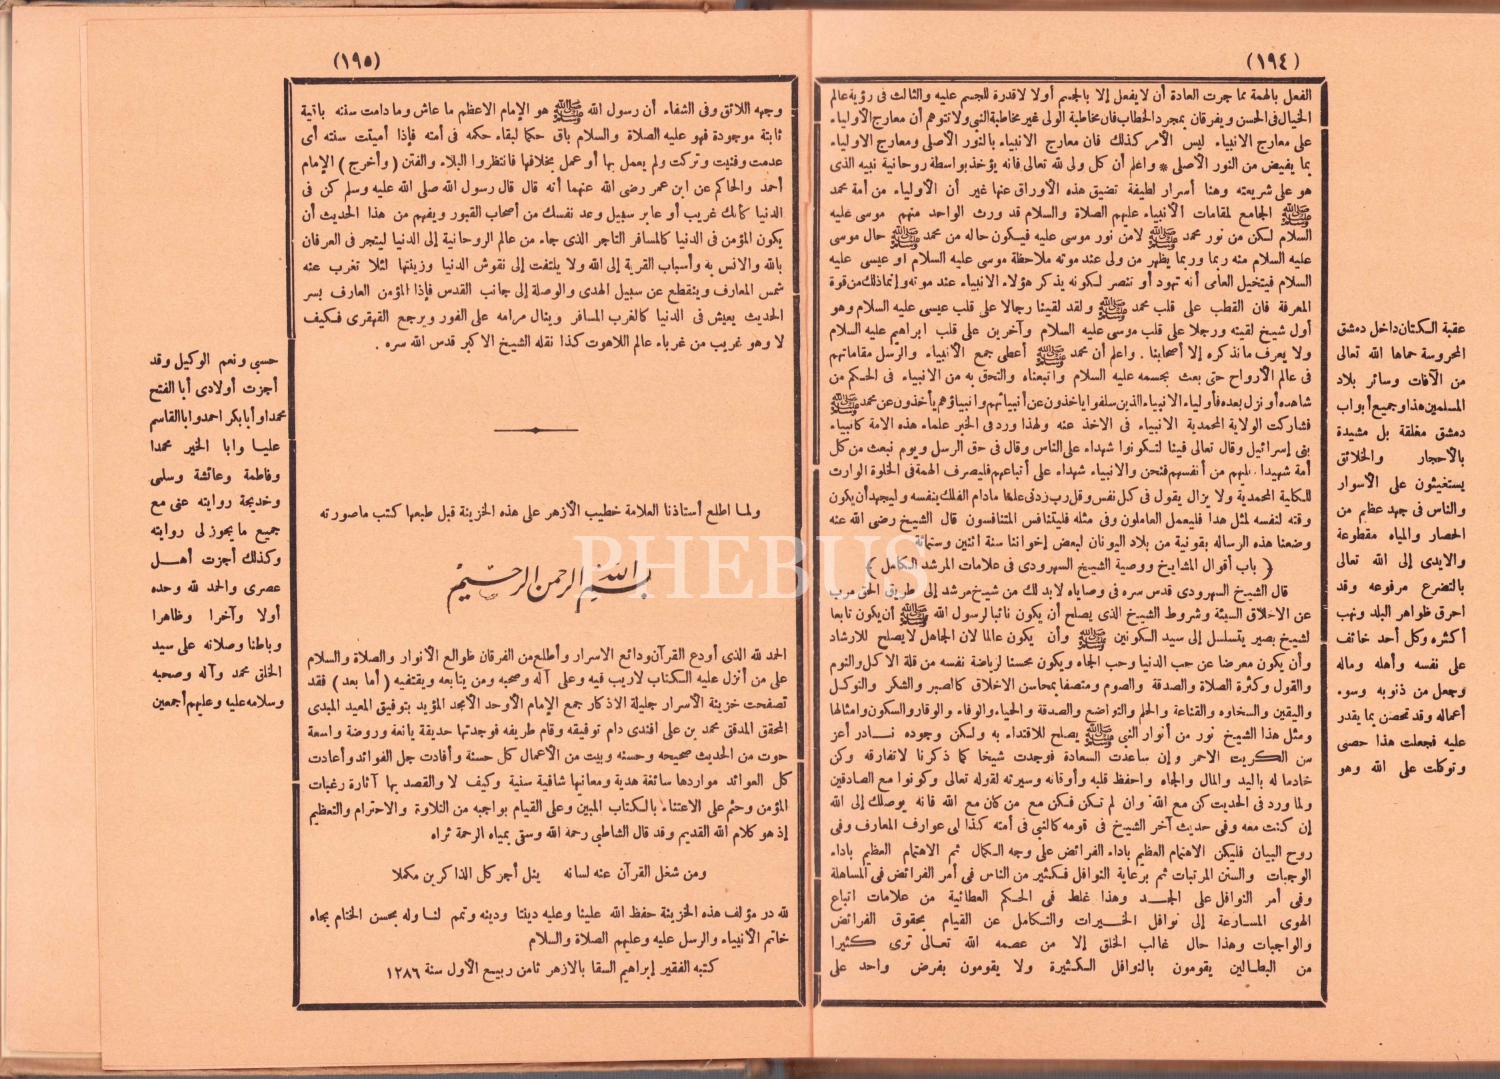 (١٩٤)
الفعل بالهمة مما جرت العادة أن لا يفعل إلا بالجسم أولا لا قدرة للجسم عليه والثالث فى رؤية عالم
الخيال فى الحسن ويفرقان بمجرد الخطاب فان مخاطبة الولى غير مخاطبة النبى ولا تتوهم أن معارج الأولياء
على معارج الانبياء ليس الأمر كذلك فان معارج الانبياء بالنور الأصلى ومعارج الاولياء
بما يفيض من النور الأصلى * واعلم أن كل ولى لله تعالى فانه يؤخذ بواسطة روحانية نبيه الذى
هو على شريعته وهنا أسرار لطيفة تضيق هذه الأوراق عنها غير أن الأولياء من أمة محمد
ﷺ الجامع لمقامات الأنبياء عليهم الصلاة والسلام قد ورث الواحد منهم موسى عليه
السلام لكن من نور محمد ﷺ لا من نور موسى عليه فيكون حاله من محمد ﷺ حال موسى
عليه السلام منه ربما وربما يظهر من ولى عند موته ملاحظة موسى عليه السلام او عيسى عليه
السلام فيتخيل العامى أنه تهود أو تنصر لكونه يذكر هؤلاء الانبياء عند موته وانما ذلك من قوة
المعرفة فان القطب على قلب محمد ﷺ ولقد لقينا رجالا على قلب عيسى عليه السلام وهو
أول شيخ لقيته ورجلا على قلب موسى عليه السلام وآخرين على قلب ابراهيم عليه السلام
ولا يعرف ما نذكره إلا أصحابنا . واعلم أن محمد ﷺ أعطى جمع الأنبياء والرسل مقاماتهم
فى عالم الأرواح حتى بعث بجسمه عليه السلام واتبعناه والتحق به من الانبياء فى الحكم من
شاهده أو نزل بعده فأولياء الانبياء الذين سلفوا ياخذون عن أنبيائهم وانبياؤهم يأخذون عن محمد ﷺ
فشاركت الولاية المحمدية الانبياء فى الاخذ عنه ولهذا ورد فى الخبر علماء هذه الامة كانبياء
بنى إسرائيل وقال تعالى فينا لتكونوا شهداء على الناس وقال فى حق الرسل ويوم نبعث من كل
أمة شهيدا عليهم من أنفسهم فنحن والانبياء شهداء على أتباعهم فليصرف الهمة فى الخلوة الوارث
للكلية المحمدية ولا يزال يقول فى كل نفس وقل رب زدنى علما ما دام الفلك بنفسه وليجهد أن يكون
وقته لنفسه لمثل هذا فليعمل العاملون وفى مثله فليتنافس المتنافسون قال الشيخ رضى الله عنه
وضعنا هذه الرساله بقونية من بلاد اليونان لبعض إخواننا سنة اثنين وستمائة
( باب أقوال المشايخ ووصية الشيخ السهرودى فى علامات المرشد الكامل )
قال الشيخ السهرودى قدس سره فى وصاياه لابد لك من شيخ مرشد إلى طريق الحق مرب
عن الاخلاق السيئة وشروط الشيخ الذى يصلح أن يكون نائبا لرسول الله ﷺ أن يكون تابعا
لشيخ بصير يتسلسل إلى سيد الكونين ﷺ وأن يكون عالما لان الجاهل لا يصلح للارشاد
وأن يكون معرضا عن حب الدنيا وحب الجاه ويكون محسنا لرياضة نفسه من قلة الاكل والنوم
والقول وكثرة الصلاة والصدقة والصوم ومتصفا بمحاسن الاخلاق كالصبر والشكر والتوكل
واليقين والسخاوه والقناعة والحلم والتواضع والصدقة والحياء والوفاء والوقار والسكون وامثالها
ومثل هذا الشيخ نور من أنوار النبى ﷺ يصلح للاقتداء به ولكن وجوده نادر أعز
من الكبريت الاحمر وإن ساعدت السعادة فوجدت شيخا كما ذكرنا لا تفارقه وكن
خادما له باليد والمال والجاه واحفظ قلبه وأوقاته وسيرته لقوله تعالى وكونوا مع الصادقين
ولما ورد فى الحديث كن مع الله وان لم تكن فكن مع من كان مع الله فانه يوصلك إلى الله
إن كنت معه وفى حديث آخر الشيخ فى قومه كالنبى فى أمته كذا لى عوارف المعارف وفى
روح البيان فليكن الاهتمام العظيم باداء الفرائض على وجه الكمال ثم الاهتمام العظيم باداء
الوجبات والسنن المرتبات ثم برعاية النوافل فكثير من الناس فى أمر الفرائض فى المساهلة
وفى أمر النوافل على الجد وهذا غلط فى الحكم العطائية من علامات اتباع
الهوى المسارعة إلى نوافل الخيرات والتكامل عن القيام بحقوق الفرائض
والواجبات وهذا حال غالب الخلق إلا من عصمه الله تعالى ترى كثيرا
من البطالين يقومون بالنوافل الكثيرة ولا يقومون بفرض واحد على
عقبة الكتان داخل دمشق
المحروسة حماها الله تعالى
من الآفات وسائر بلاد
المسلمين هذا وجميع أبواب
دمشق مغلقة بل مشيدة
بالأحجار والخلائق
يستغيثون على الأسوار
والناس فى جهد عظيم من
الحصار والمياه مقطوعة
والايدى إلى الله تعالى
بالتضرع مرفوعه وقد
احرق ظواهر البلد ونهب
أكثره وكل أحد خائف
على نفسه وأهله وماله
وجعل من ذنوبه وسوء
أعماله وقد تحصن بما يقدر
عليه فجعلت هذا حصى
وتوكلت على الله وهو
(١٩٥)
وجهه اللائق وفى الشفاء أن رسول الله ﷺ هو الإمام الاعظم ما عاش وما دامت سنته باقية
ثابتة موجودة فهو عليه الصلاة والسلام باق حكما لبقاء حكمه فى أمته فإذا أميتت سنته أى
عدمت وفنيت وتركت ولم يعمل بها أو عمل بخلافها فانتظروا البلاء والفتن ( وأخرج ) الإمام
أحمد والحاكم عن ابن عمر رضى الله عنهما أنه قال قال رسول الله صلى الله عليه وسلم كن فى
الدنيا كأنك غريب أو عابر سبيل وعد نفسك من أصحاب القبور ويفهم من هذا الحديث أن
يكون المؤمن فى الدنيا كالمسافر التاجر الذى جاء من عالم الروحانية إلى الدنيا ليتجر فى العرفان
بالله والانس به وأسباب القربة إلى الله ولا يلتفت إلى نقوش الدنيا وزينتها لئلا تغرب عنه
شمس المعارف وينقطع عن سبيل الهدى والوصلة إلى جانب القدس فإذا المؤمن العارف بسر
الحديث يعيش فى الدنيا كالغرب المسافر وينال مرامه على الفور ويرجع القهقرى فكيف
لا وهو غريب من غرباء عالم اللاهوت كذا نقله الشيخ الاكبر قدس الله سره .
ولما اطلع أستاذنا العلامة خطيب الأزهر على هذه الخزينة قبل طبعها كتب ما صورته
بسم الله الرحمن الرحيم
الحمد لله الذى أودع القرآن ودائع الاسرار وأطلع من الفرقان طوالع الأنوار والصلاة والسلام
على من أنزل عليه الكتاب لاريب فيه وعلى آله وصحبه ومن يتابعه ويقتفيه ( أما بعد ) فقد
تصفحت خزينة الأسرار جليلة الاذكار جمع الإمام الأوحد الأمجد المؤيد بتوفيق المعيد المبدى
المحقق المدقق محمد بن على أفندى دام توفيقه وقام طريفه فوجدتها حديقة يانعة وروضة واسعة
حوت من الحديث صحيحه وحسنه وبيت من الأعمال كل حسنة وأفادت جل الفوائد وأعادت
كل العوائد مواردها سائغة هدية ومعانيها شافية سنية وكيف لا والقصد بها آثارة رغبات
المؤمن وحثهم على الاعتناء بالكتاب المبين وعلى القيام بواجبه من التلاوة والاحترام والتعظيم
إذ هو كلام الله القديم وقد قال الشاطبى رحمة الله وسقى بمياه الرحمة ثراه
ومن شغل القرآن عنه لسانه ينل أجر كل الذاكرين مكملا
لله در مؤلف هذه الخزينة حفظ الله علينا وعليه ديننا ودينه وتمم لنا وله بحسن الختام بجاه
خاتم الأنبياء والرسل عليه وعليهم الصلاة والسلام
كتبه الفقير إبراهيم السقا بالازهر ثامن ربيع الأول سنة ١٢٨٦
حسبى ونعم الوكيل وقد
أجزت أولادى أبا الفتح
محمدا وأبا بكر احمد وابا القاسم
عليا وابا الخير محمدا
وفاطمة وعائشة وسلمى
وخديجة روايته عنى مع
جميع ما يجوز لى روايته
وكذلك أجزت أهل
عصرى والحمد لله وحده
أولا وآخرا وظاهرا
وباطنا وصلاته على سيد
الخلق محمد وآله وصحبه
وسلامه عليه وعليهم أجمعين
PHEBUS